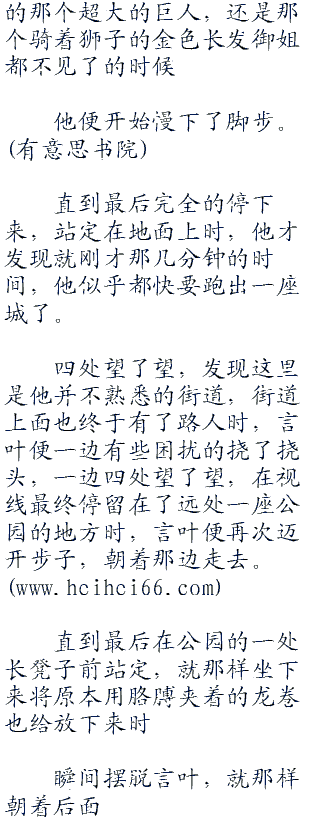 的那个超大的巨人，还是那
个骑着狮子的金色长发御姐
都不见了的时候
他便开始漫下了脚步。
(有意思书院)
直到最后完全的停下
来，站定在地面上时，他才
发现就刚才那几分钟的时
间，他似乎都快要跑出一座
城了。
四处望了望，发现这里
是他并不熟悉的街道，街道
上面也终于有了路人时，言
叶便一边有些困扰的挠了挠
头，一边四处望了望，在视
线最终停留在了远处一座公
园的地方时，言叶便再次迈
开步子，朝着那边走去。
(www.hcihci66.com)
直到最后在公园的一处
长凳子前站定，就那样坐下
来将原本用胳膊夹着的龙卷
也给放下来时
瞬间摆脱言叶，就那样
朝着后面